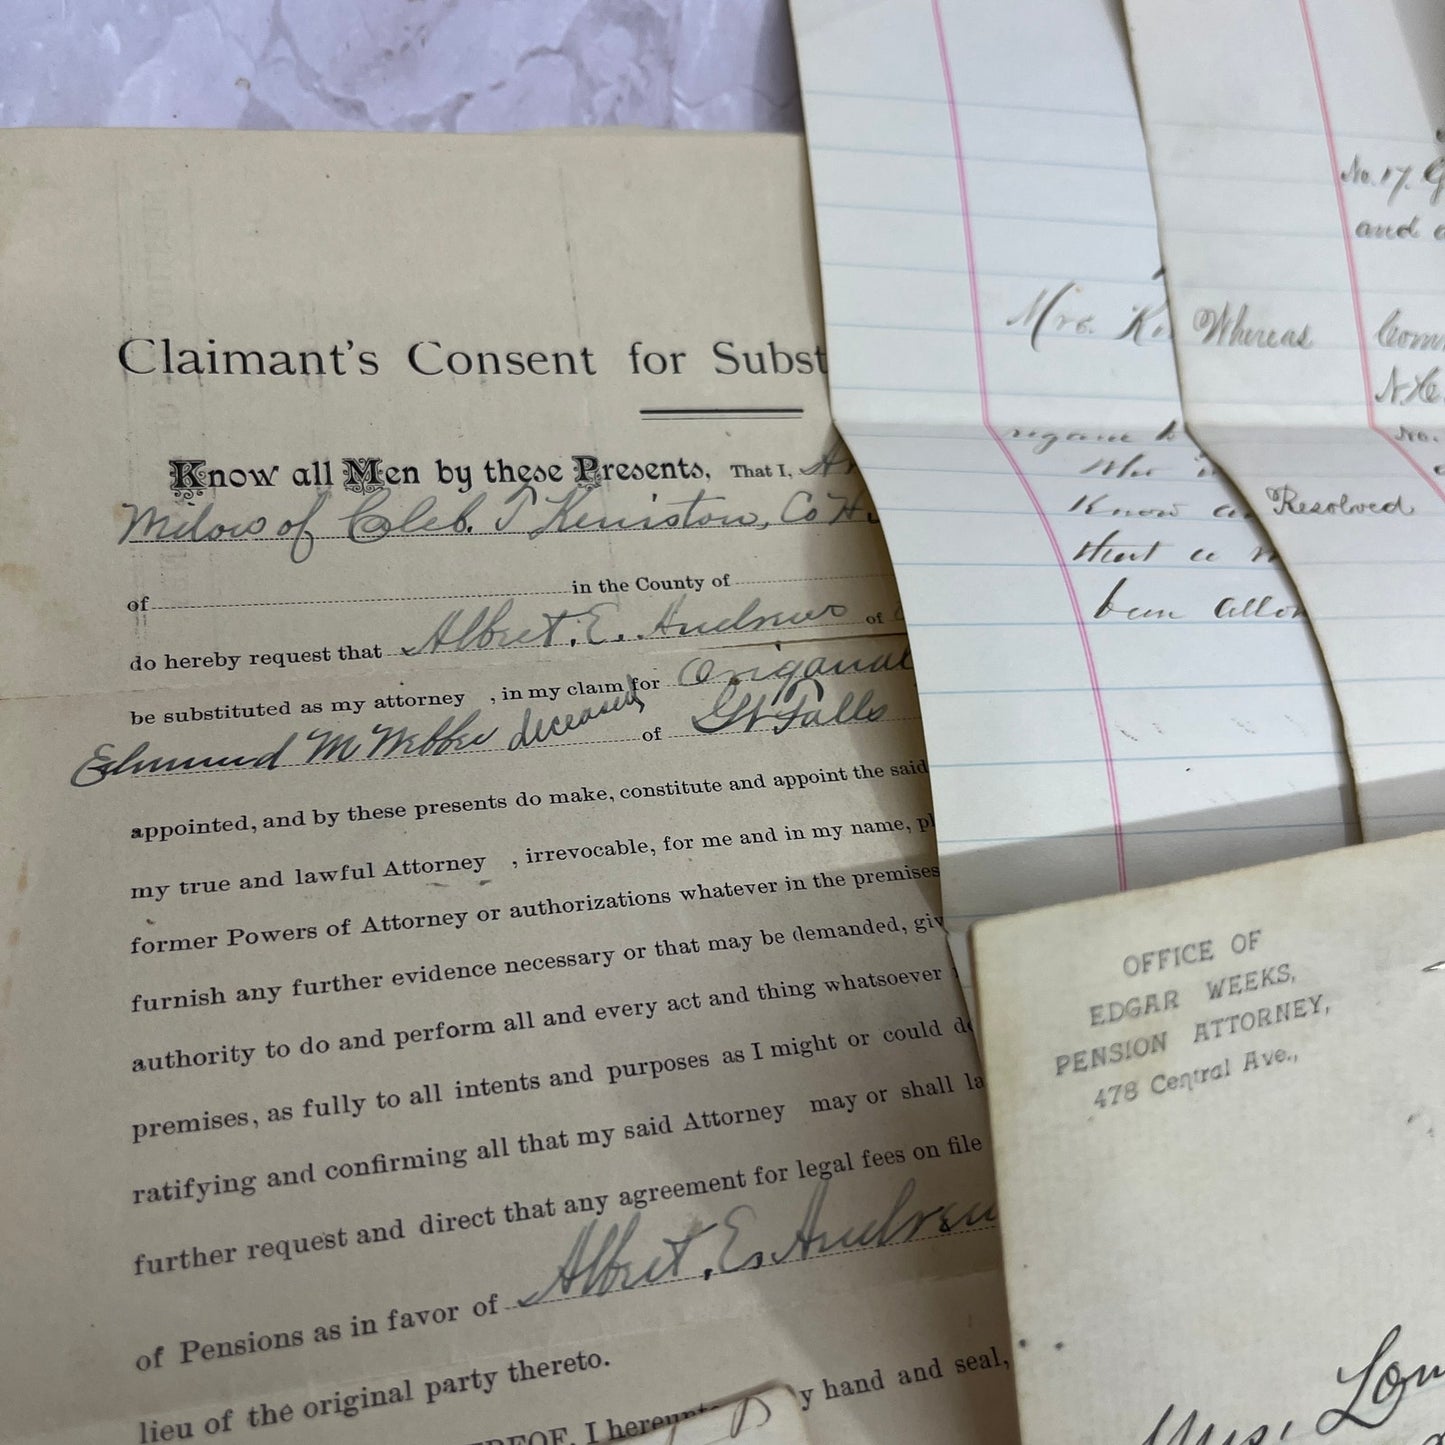 Claimant's Consent for Subst
Know all Men by these Presents, That I,
Widow of Caleb. T Keniston, Co H.
of in the County of
do hereby request that Albert. E. Andrews of
be substituted as my attorney , in my claim for Origanal
Edmund M Webber deceased, of Gt Falls
appointed, and by these presents do make, constitute and appoint the said
my true and lawful Attorney , irrevocable, for me and in my name, pl
former Powers of Attorney or authorizations whatever in the premises
furnish any further evidence necessary or that may be demanded, giv
authority to do and perform all and every act and thing whatsoever
premises, as fully to all intents and purposes as I might or could do
ratifying and confirming all that my said Attorney may or shall la
further request and direct that any agreement for legal fees on file
of Pensions as in favor of Albert. E. Andrew
lieu of the original party thereto.
REOF, I hereunto y hand and seal,
Mrs. K
know a
that a
been allow
No. 17. G
and
Whereas Com
N.H.
No.
Resolved
OFFICE OF
EDGAR WEEKS,
PENSION ATTORNEY,
478 Central Ave.,
Mrs. Lou